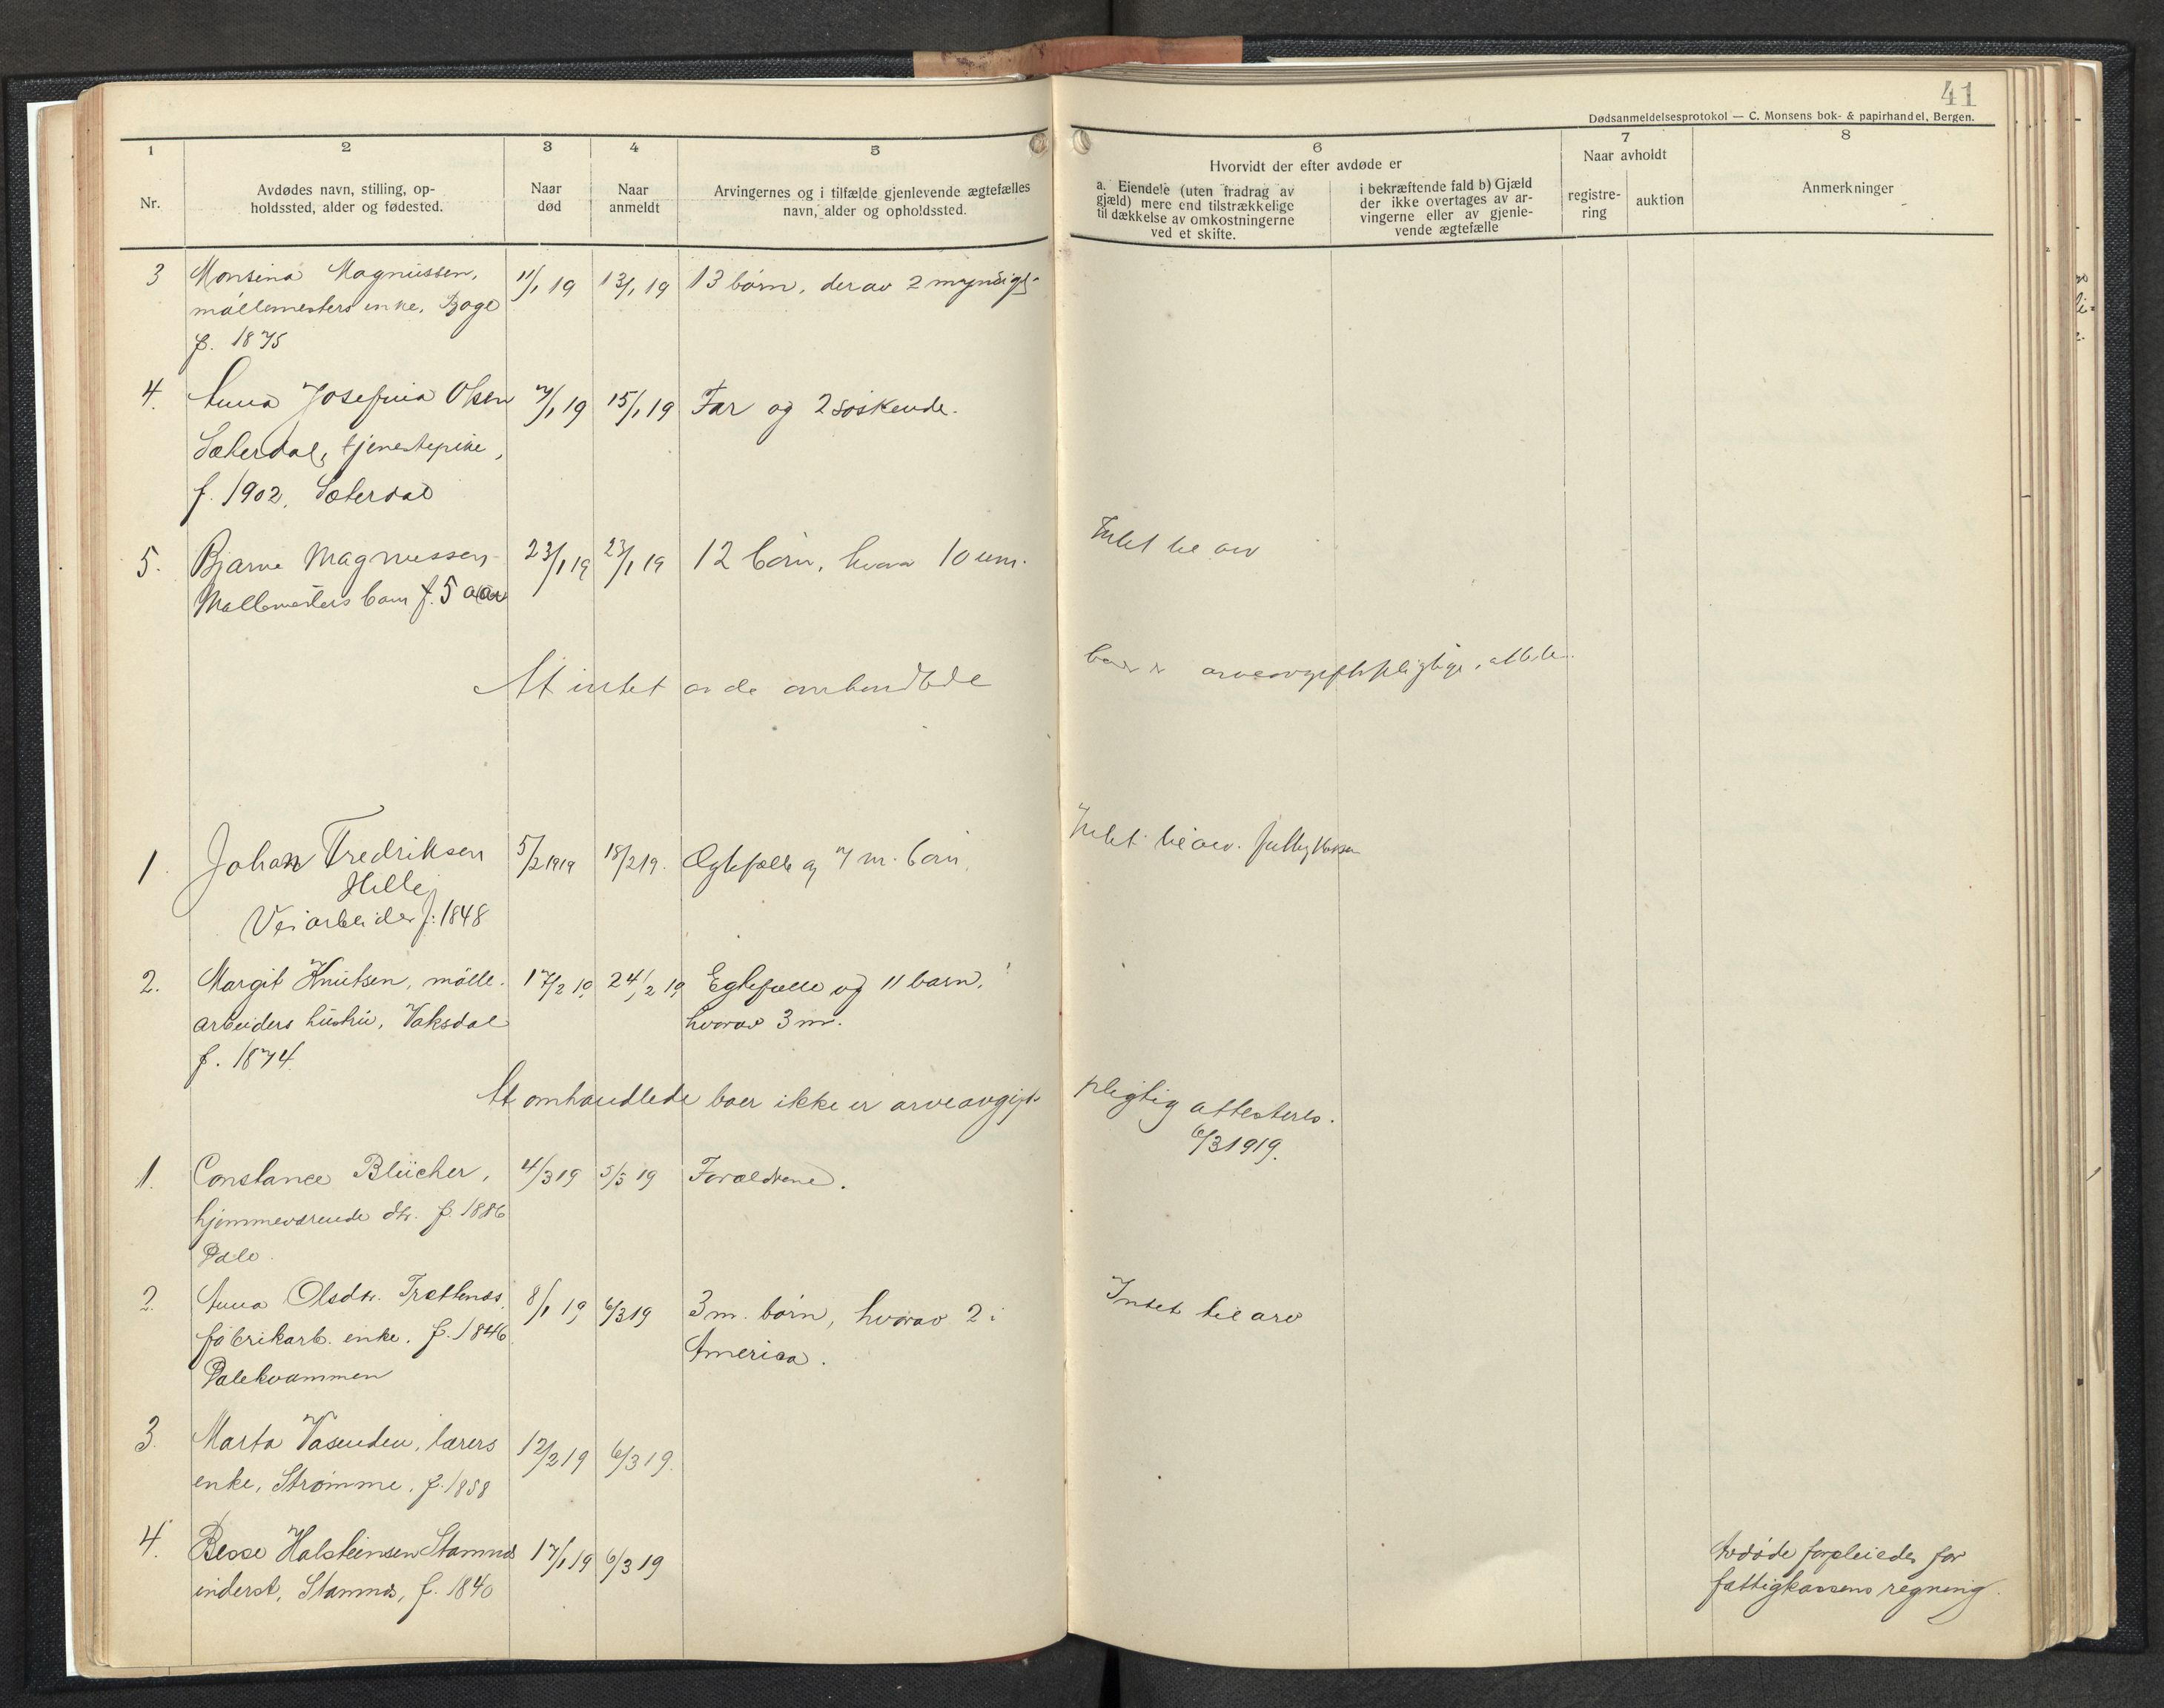 41
Dødsanmeldelsesprotokol — C. Monsens bok- & papirhandel, Bergen.
1
2
3
4
5
6
7
8
Nr.
Avdødes navn, stilling, op-
holdssted, alder og fødested.
Naar
død
Naar
anmeldt
Arvingernes og i tilfælde gjenlevende ægtefælles
navn, alder og opholdssted.
Hvorvidt der efter avdøde er
a. Eiendele (uten fradrag av
gjæld) mere end tilstrækkelige
til dækkelse av omkostningerne
ved et skifte.
i bekræftende fald b) Gjæld
der ikke overtages av ar-
vingerne eller av gjenle-
vende ægtefælle
Naar avholdt
registre-
ring
auktion
Anmerkninger
3 Monsina Magnussen, 11/1 19 13/1 19 13 børn, derav 2 myndige
møllemesters enke, Boge
f. 1875
4. Anna Josefina Olsen 7/1 19 15/1 19 Far og 2 søskende.
Sæterdal, tjenestepike,
f. 1902, Sæterdal
5. Bjarne Magnussen 23/1 19 23/1 19 12 børn, hvorav 10 um. Intet til arv
Møllemesters barn f. 5 aar
At intet av de omhandlede boer er arveavgiftspligtige, attesteres
1. Johan Fredriksen 5/2 1919 18/2 19. Ægtefælle og 7 m. børn. Intet til arv.
Hille
Veiarbeider f. 1848
2. Margit Knutsen, mølle- 17/2 19 24/2 19 Egtefælle og 11 barn,
arbeiders hustru, Vaksdal hvorav 3 m.
f. 1874
At omhandlede boer ikke er arveavgifts pligtig attesteres.
6/3 1919.
1. Constance Blücher, 4/3 19 5/3 19 Forældrene.
hjemmeværende dtr. f. 1886
Dale.
2. Anna Olsdtr. Trættenæs, 8/1 19 6/3 19 3 m. børn, hvorav 2 i Intet til arv
fabrikarb. enke. f. 1846 America.
Dalekvammen
3. Marta Vasenden, lærers 12/2 19 6/3 19.
enke, Strømme, f. 1858
4. Besse Halsteinsen Stamnæs 17/1 19 6/3 19 Avdøde forpleiedes for
inderst, Stamnæs, f. 1840 fattigkassens regning.